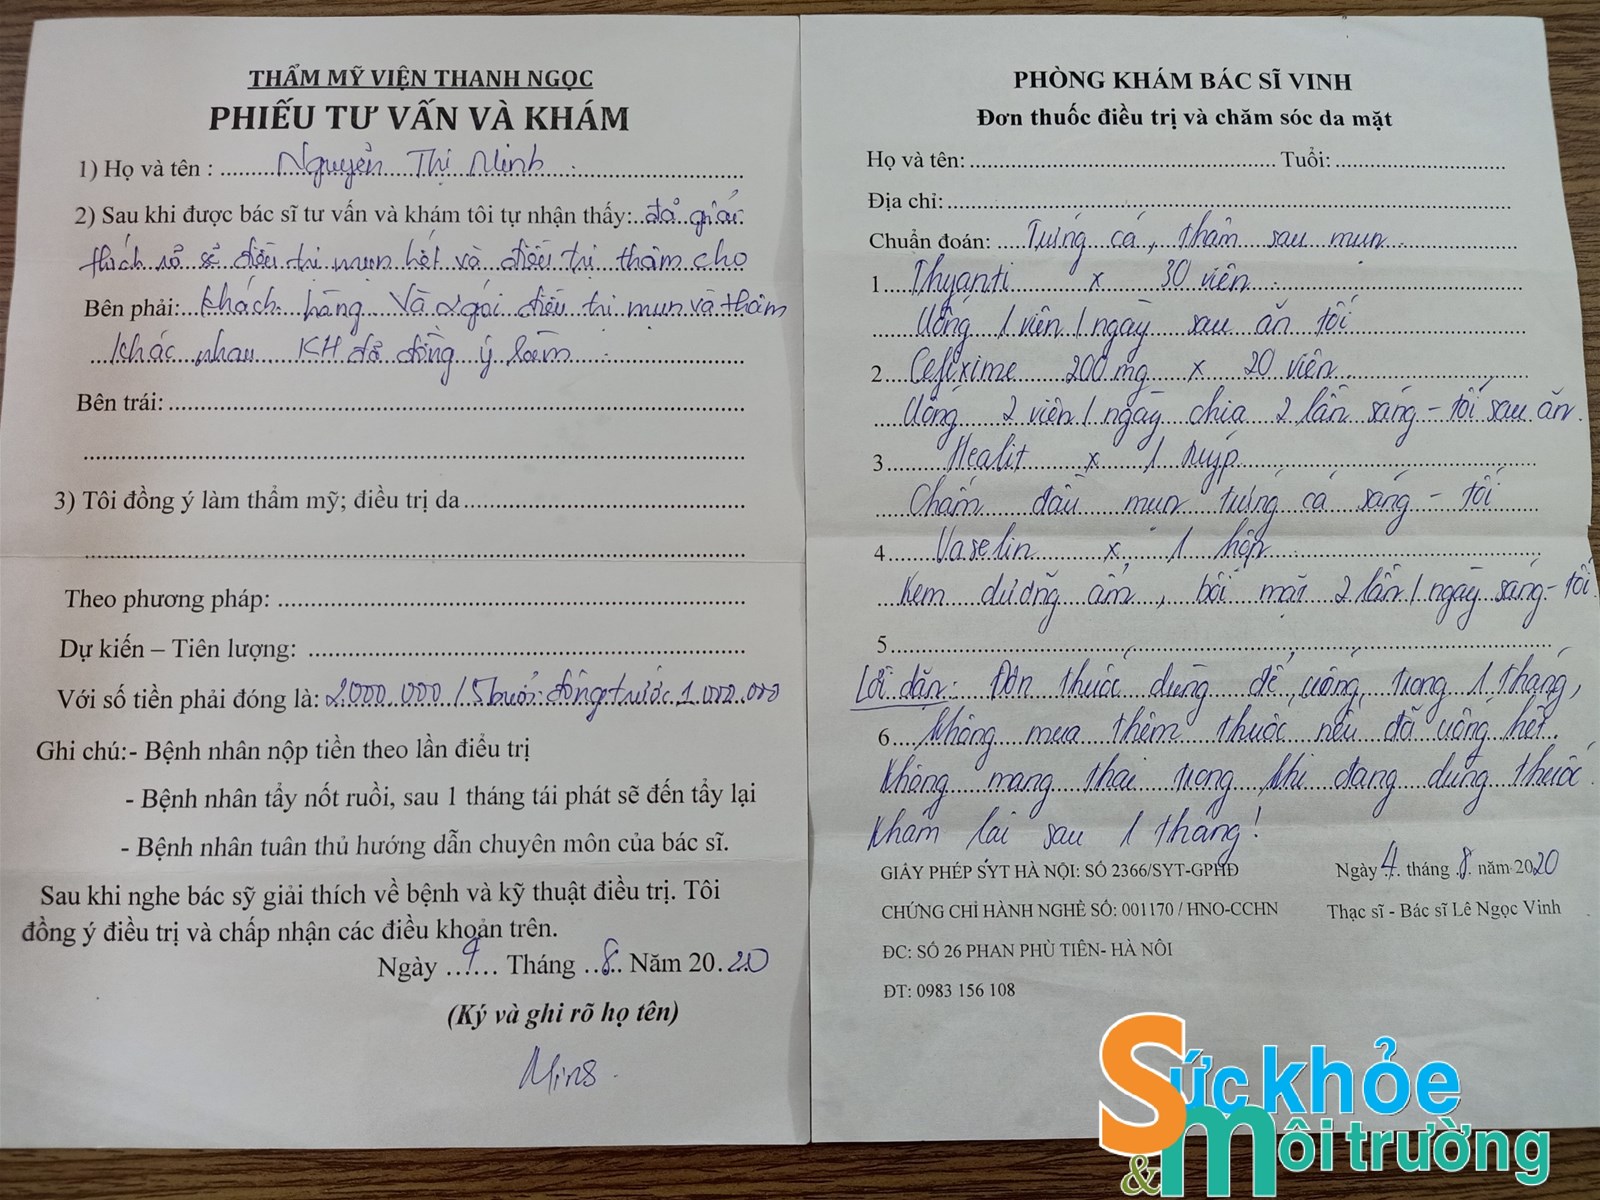 THẨM MỸ VIỆN THANH NGỌC
PHIẾU TƯ VẤN VÀ KHÁM
1) Họ và tên : Nguyễn Thị Minh
2) Sau khi được bác sĩ tư vấn và khám tôi tự nhận thấy: đã giải
thích rõ sẽ điều trị mụn hết và điều trị thâm cho
Bên phải: khách hàng Và 2 gói điều trị mụn và thâm
khác nhau KH đã đồng ý làm
Bên trái:
3) Tôi đồng ý làm thẩm mỹ; điều trị da
Theo phương pháp:
Dự kiến – Tiên lượng:
Với số tiền phải đóng là: 2000.000 / 5 buổi đóng trước 1.000.000
Ghi chú:- Bệnh nhân nộp tiền theo lần điểu trị
- Bệnh nhân tẩy nốt ruồi, sau 1 tháng tái phát sẽ đến tẩy lại
- Bệnh nhân tuân thủ hướng dẫn chuyên môn của bác sĩ.
Sau khi nghe bác sỹ giải thích về bệnh và kỹ thuật điều trị. Tôi
đồng ý điều trị và chấp nhận các điều khoản trên.
Ngày 9 Tháng 8 Năm 20.20
(Ký và ghi rõ họ tên)
PHÒNG KHÁM BÁC SĨ VINH
Đơn thuốc điều trị và chăm sóc da mặt
Họ và tên: Tuổi:
Địa chỉ:
Chuẩn đoán: Trứng cá, thâm sau mụn
1 Thyanti x 30 viên
Uống 1 viên / ngày sau ăn tối
2 Cefixime 200 mg x 20 viên
Uống 2 viên / ngày chia 2 lần sáng – tối sau ăn
3 Healit x 1 tuýp
Chấm đầu mụn trứng cá sáng – tối
4 Vaselin x 1 hộp
Kem dưỡng ẩm, bôi mặt 2 lần / ngày sáng – tối
5
Lời dặn: Đơn thuốc dùng để uống trong 1 tháng,
6 không mua thêm thuốc nếu đã uống hết.
Không mang thai trong khi đang dùng thuốc.
Khám lại sau 1 tháng!
GIẤY PHÉP SYT HÀ NỘI: SỐ 2366/SYT-GPHĐ
Ngày 4 tháng 8 năm 2020
CHỨNG CHỈ HÀNH NGHỀ SỐ: 001170 / HNO-CCHN
Thạc sĩ - Bác sĩ Lê Ngọc Vinh
ĐC: SỐ 26 PHAN PHÙ TIÊN- HÀ NÔI
ĐT: 0983 156 108
Sức khỏe
& môi trường